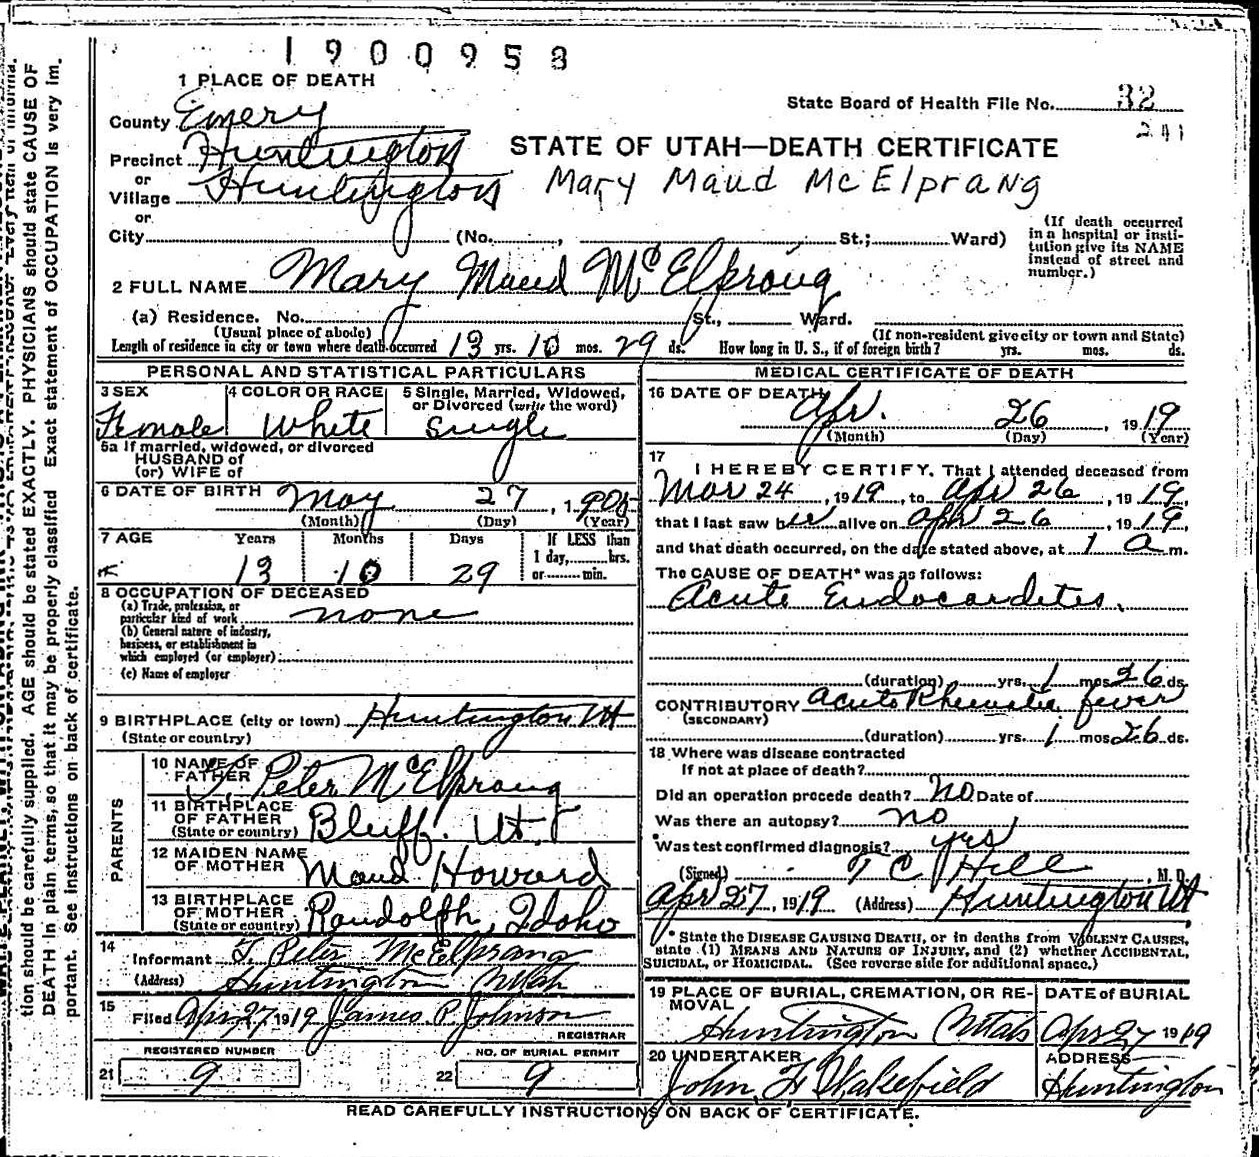 1900958
1 PLACE OF DEATH
State Board of Health File No. 32
241
County Emery
Precinct Huntington
or
Village Huntington
or
City (No. , St.; Ward)
STATE OF UTAH—DEATH CERTIFICATE
Mary Maud McElprang
(If death occurred
in a hospital or insti-
tution give its NAME
instead of street and
number.)
2 FULL NAME Mary Maud McElprang
(a) Residence. No. St., Ward.
(Usual place of abode) (If non-resident give city or town and State)
Length of residence in city or town where death occurred 13 yrs. 10 mos. 29 ds. How long in U. S., if of foreign birth? yrs. mos. ds.
PERSONAL AND STATISTICAL PARTICULARS
3 SEX
Female
4 COLOR OR RACE
White
5 Single, Married, Widowed,
or Divorced (write the word)
Single
5a If married, widowed, or divorced
HUSBAND of
(or) WIFE of
6 DATE OF BIRTH May 27, 1905
(Month) (Day) (Year)
7 AGE Years Months Days If LESS than
1 day, hrs.
or min.
13 10 29
8 OCCUPATION OF DECEASED
(a) Trade, profession, or
particular kind of work none
(b) General nature of industry,
business, or establishment in
which employed (or employer):
(c) Name of employer
9 BIRTHPLACE (city or town) Huntington Ut
(State or country)
PARENTS
10 NAME OF
FATHER S. Peter McElprang
11 BIRTHPLACE
OF FATHER
(State or country) Bluff. Ut.
12 MAIDEN NAME
OF MOTHER Maud Howard
13 BIRTHPLACE
OF MOTHER
(State or country) Randolph, Idaho
14
Informant S. Peter McElprang
(Address) Huntington Utah
15
Filed Apr 27 1919 James. P. Johnson
REGISTRAR
REGISTERED NUMBER NO. OF BURIAL PERMIT
21 9 22 9
MEDICAL CERTIFICATE OF DEATH
16 DATE OF DEATH
Apr. 26, 1919
(Month) (Day) (Year)
17
I HEREBY CERTIFY, That I attended deceased from
Mar 24, 1919, to Apr 26, 1919,
that I last saw her alive on Apr 26, 1919,
and that death occurred, on the date stated above, at 1 a m.
The CAUSE OF DEATH* was as follows:
Acute Endocarditis.
(duration) yrs. 1 mos 26 ds.
CONTRIBUTORY Acute Rheumatic fever
(SECONDARY)
(duration) yrs. 1 mos 26 ds.
18 Where was disease contracted
If not at place of death?
Did an operation precede death? no Date of
Was there an autopsy? no
Was test confirmed diagnosis? yes
(Signed) T C Hill, M. D.
Apr 27, 1919 (Address) Huntington Ut
* State the DISEASE CAUSING DEATH, or in deaths from VIOLENT CAUSES,
state (1) MEANS AND NATURE OF INJURY, and (2) whether ACCIDENTAL,
SUICIDAL, or HOMICIDAL. (See reverse side for additional space.)
19 PLACE OF BURIAL, CREMATION, OR RE-
MOVAL
Huntington Utah
DATE of BURIAL
Apr 27 1919
20 UNDERTAKER
John F Wakefield
ADDRESS
Huntington
READ CAREFULLY INSTRUCTIONS ON BACK OF CERTIFICATE.
tion should be carefully supplied. AGE should be stated EXACTLY. PHYSICIANS should state CAUSE OF
DEATH in plain terms, so that it may be properly classified. Exact statement of OCCUPATION is very im-
portant. See instructions on back of certificate.